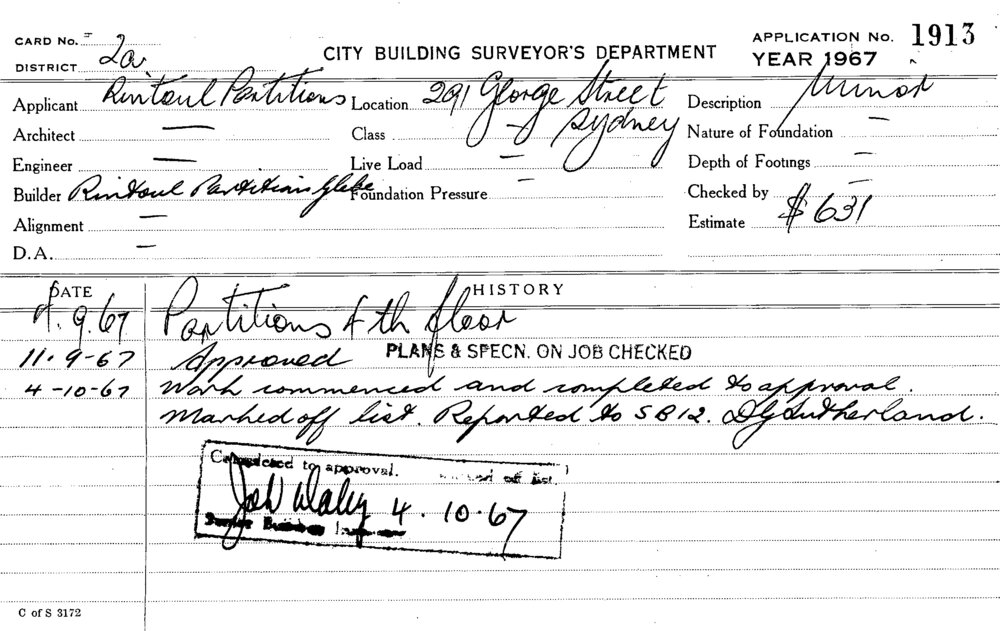 CARD No.
DISTRICT 2a
CITY BUILDING SURVEYOR'S DEPARTMENT
APPLICATION No. 1913
YEAR 1967
Applicant Rintoul Partitions Location 291 George Street Sydney Description Minor
Architect — Class Nature of Foundation —
Engineer — Live Load — Depth of Footings —
Builder Rintoul Partitions Glebe Foundation Pressure — Checked by
Alignment — Estimate $631
D.A. —
DATE HISTORY
.9.67 Partitions 4th floor
11.9-67 Approved PLANS & SPECN. ON JOB CHECKED
4-10-67 Work commenced and completed to approval.
Marked off list. Reported to SB12. DG Sutherland.
Completed to approval. off list
4.10.67
Senior Building
C of S 3172